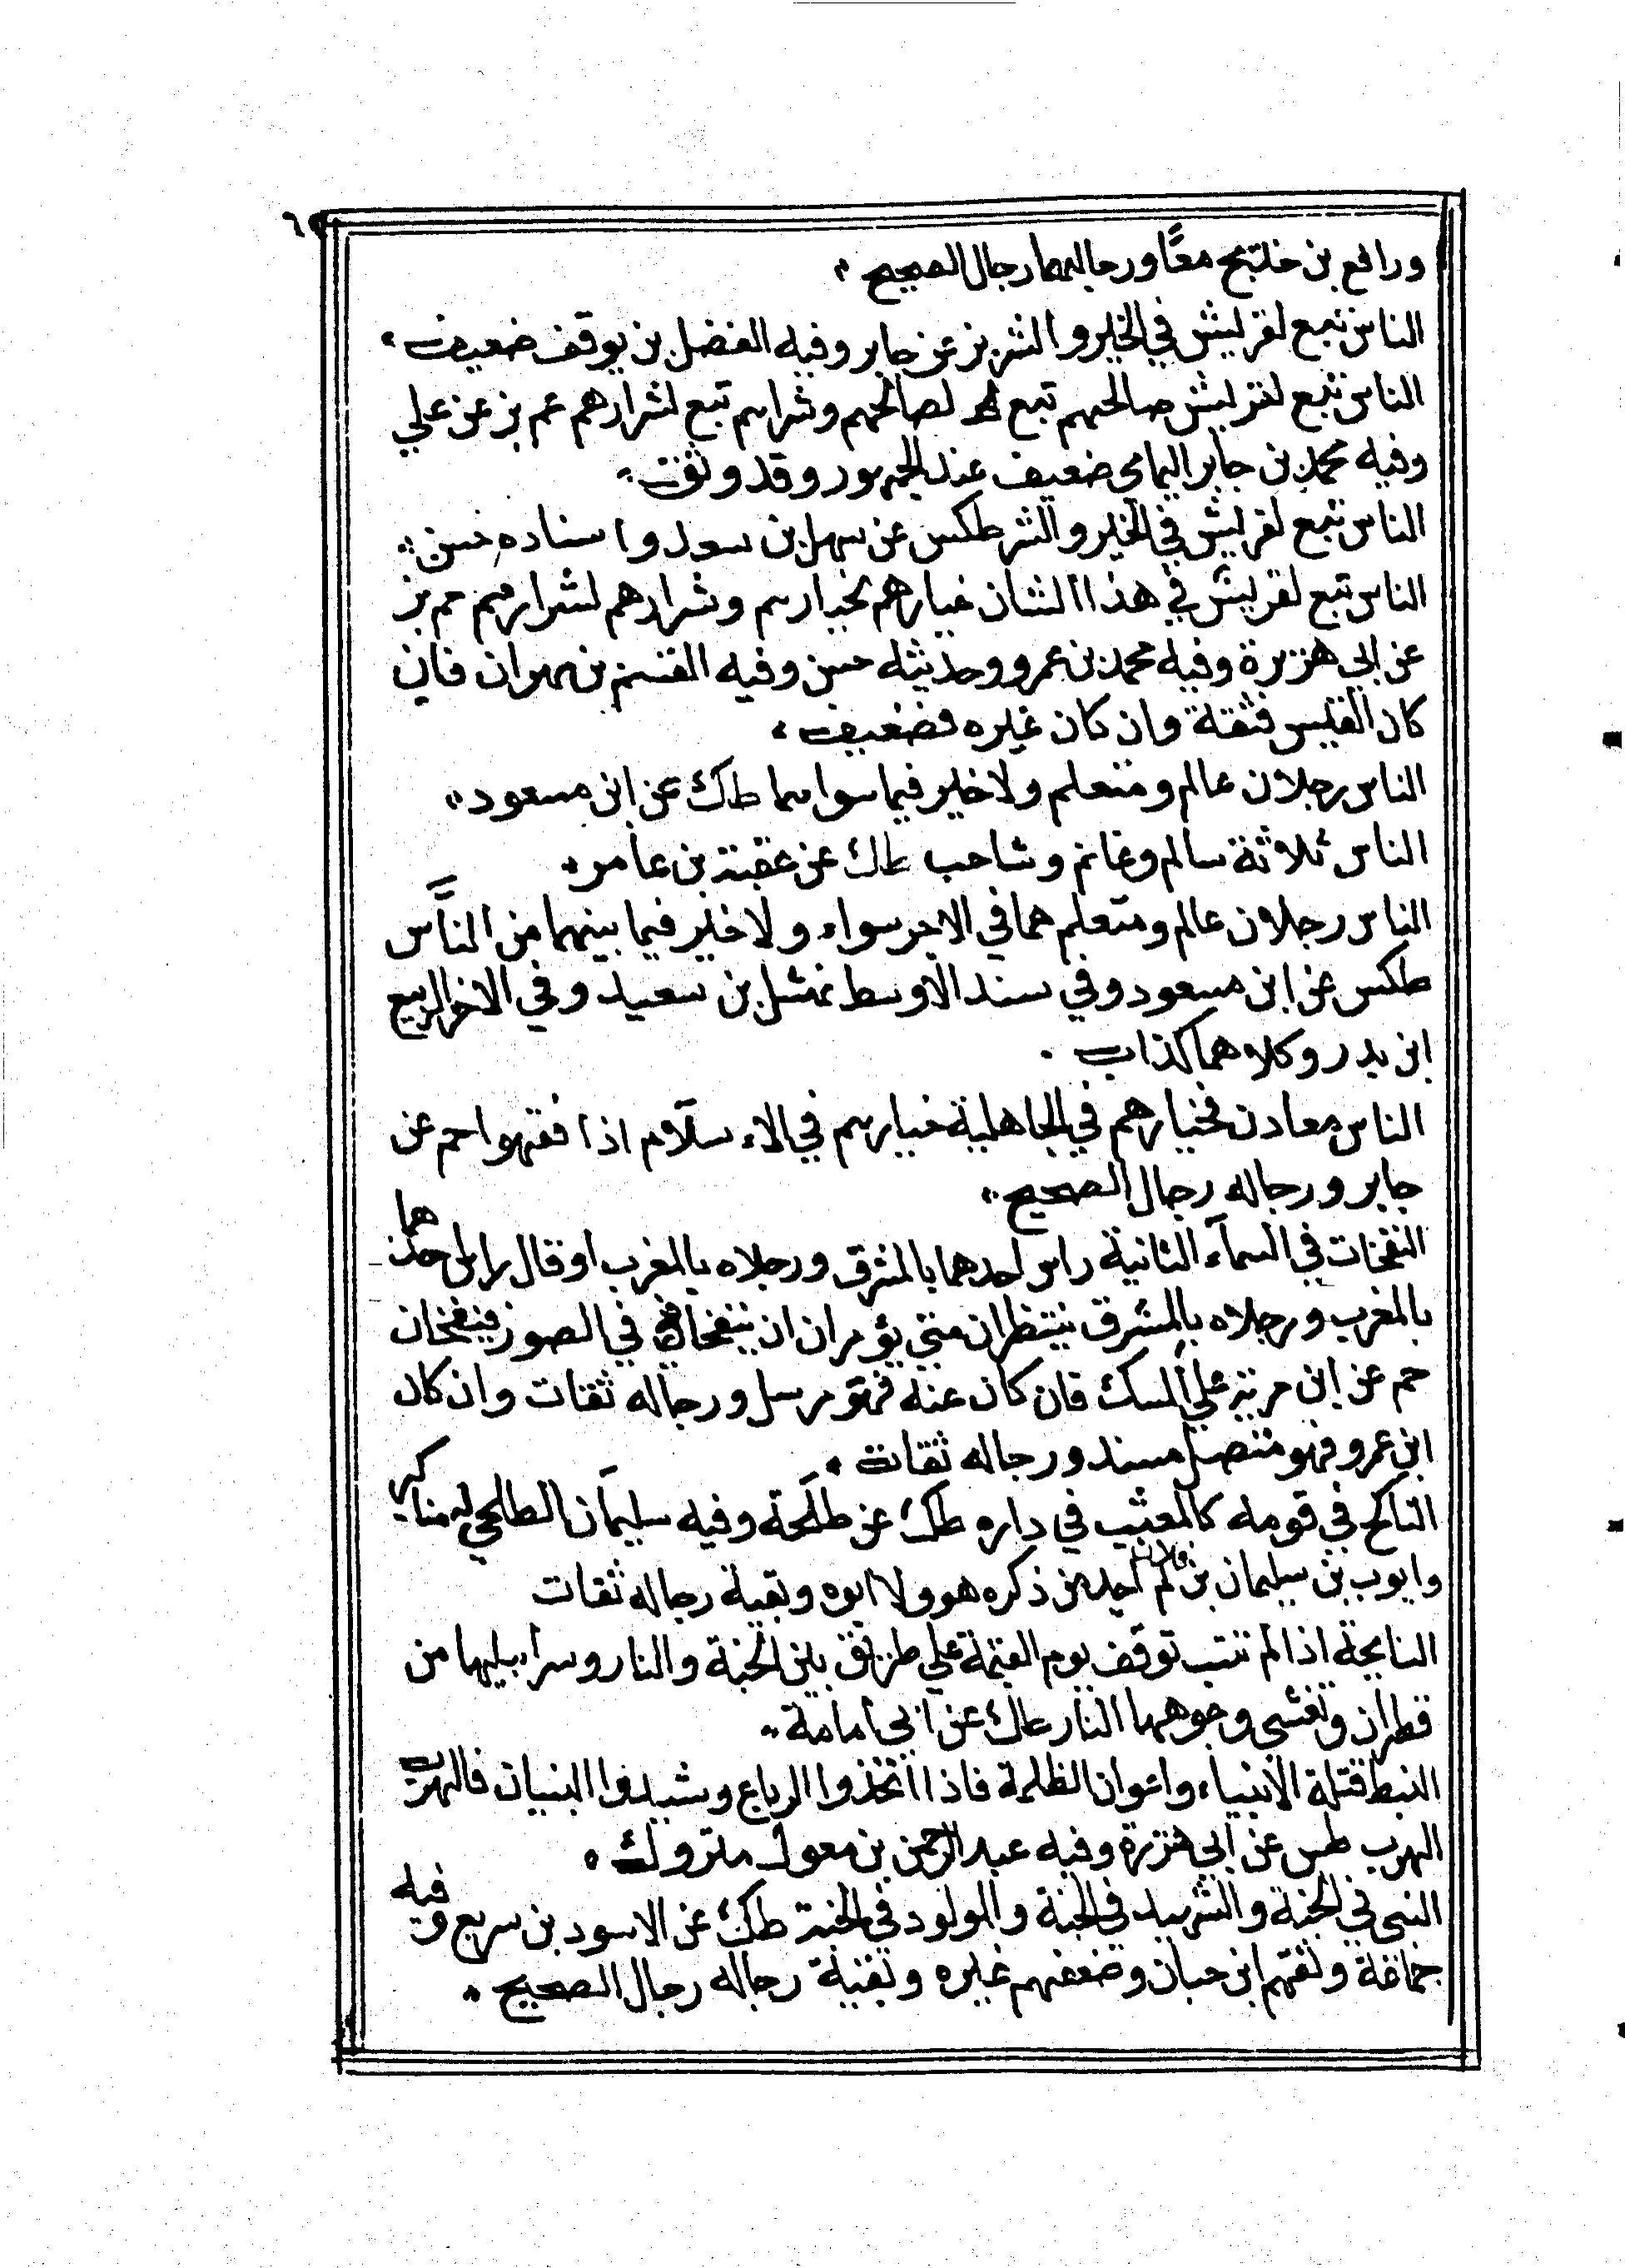 ورافع بن خديج معًا ورجالهما رجال الصحيح
الناس تبع لقريش في الخير والشر بز عن جابر وفيه الفضل بن يوقف ضعيف
الناس تبع لقريش صالحهم تبع لصالحهم وشرارهم تبع لشرارهم عم بز عن علي
وفيه محمد بن جابر اليمامي ضعيف عند الجمهور وقد وثق
الناس تبع لقريش في الخير والشر طكس عن سهل بن سعد واسناده حسن
الناس تبع لقريش في هذا الشان خيارهم لخيارهم وشرارهم لشرارهم حم بز
عن ابي هريرة وفيه محمد بن عمرو وحديثه حسن وفيه القسم بن مهران فان
كان القيس فثقة وان كان غيره فضعيف
الناس رجلان عالم ومتعلم ولا خير فيما سواهما طك عن ابن مسعود
الناس ثلاثة سالم وغانم وشاحب طك عن عقبة بن عامر
الناس رجلان عالم ومتعلم هما في الاجر سواء ولا خير فيما بينهما من النَّاس
طكس عن ابن مسعود وفي سند الاوسط نهشل بن سعيد وفي الاخر الربيع
ابن بدر وكلاهما كذاب
الناس معادن فخيارهم في الجاهلية خيارهم في الاسلام اذا فقهوا حم عن
جابر ورجاله رجال الصحيح
النفخات في السمآء الثانية راس احدهما بالمشرق ورجلاه بالمغرب او قال راس احدهما
بالمغرب ورجلاه بالمشرق ينتظران متي يؤمران ان ينفخا في الصور فينفخان
حم عن ابن مرية علي الشك فان كان عنه فهو مرسل ورجاله ثقات وان كان
ابن عمرو فهو متصل مسند ورجاله ثقات
الناكح في قومه كالمعشب في داره طك عن طلحة وفيه سليمان الطلحي له مناكير
وايوب بن سليمان بن لم اجد من ذكره هو ولا ابوه وبقية رجاله ثقات
النايحة اذا لم تتب توقف يوم القيمة علي طريق بين الجنة والنار وسرابيلها من
قطران وتغشي وجوهها النار طك عن ابي امامة
النبط قتلة الانبياء واعوان الظلمة فاذا اتخذوا الرباع وشيدوا البنيان فالهرب
الهرب طس عن ابي هريرة وفيه عبد الرحمن بن معول متروك
النبي في الجنة والشهيد في الجنة والمولود في الجنة طك عن الاسود بن سريع وفيه
جماعة وثقهم ابن حبان وضعفهم غيره وبقية رجاله رجال الصحيح